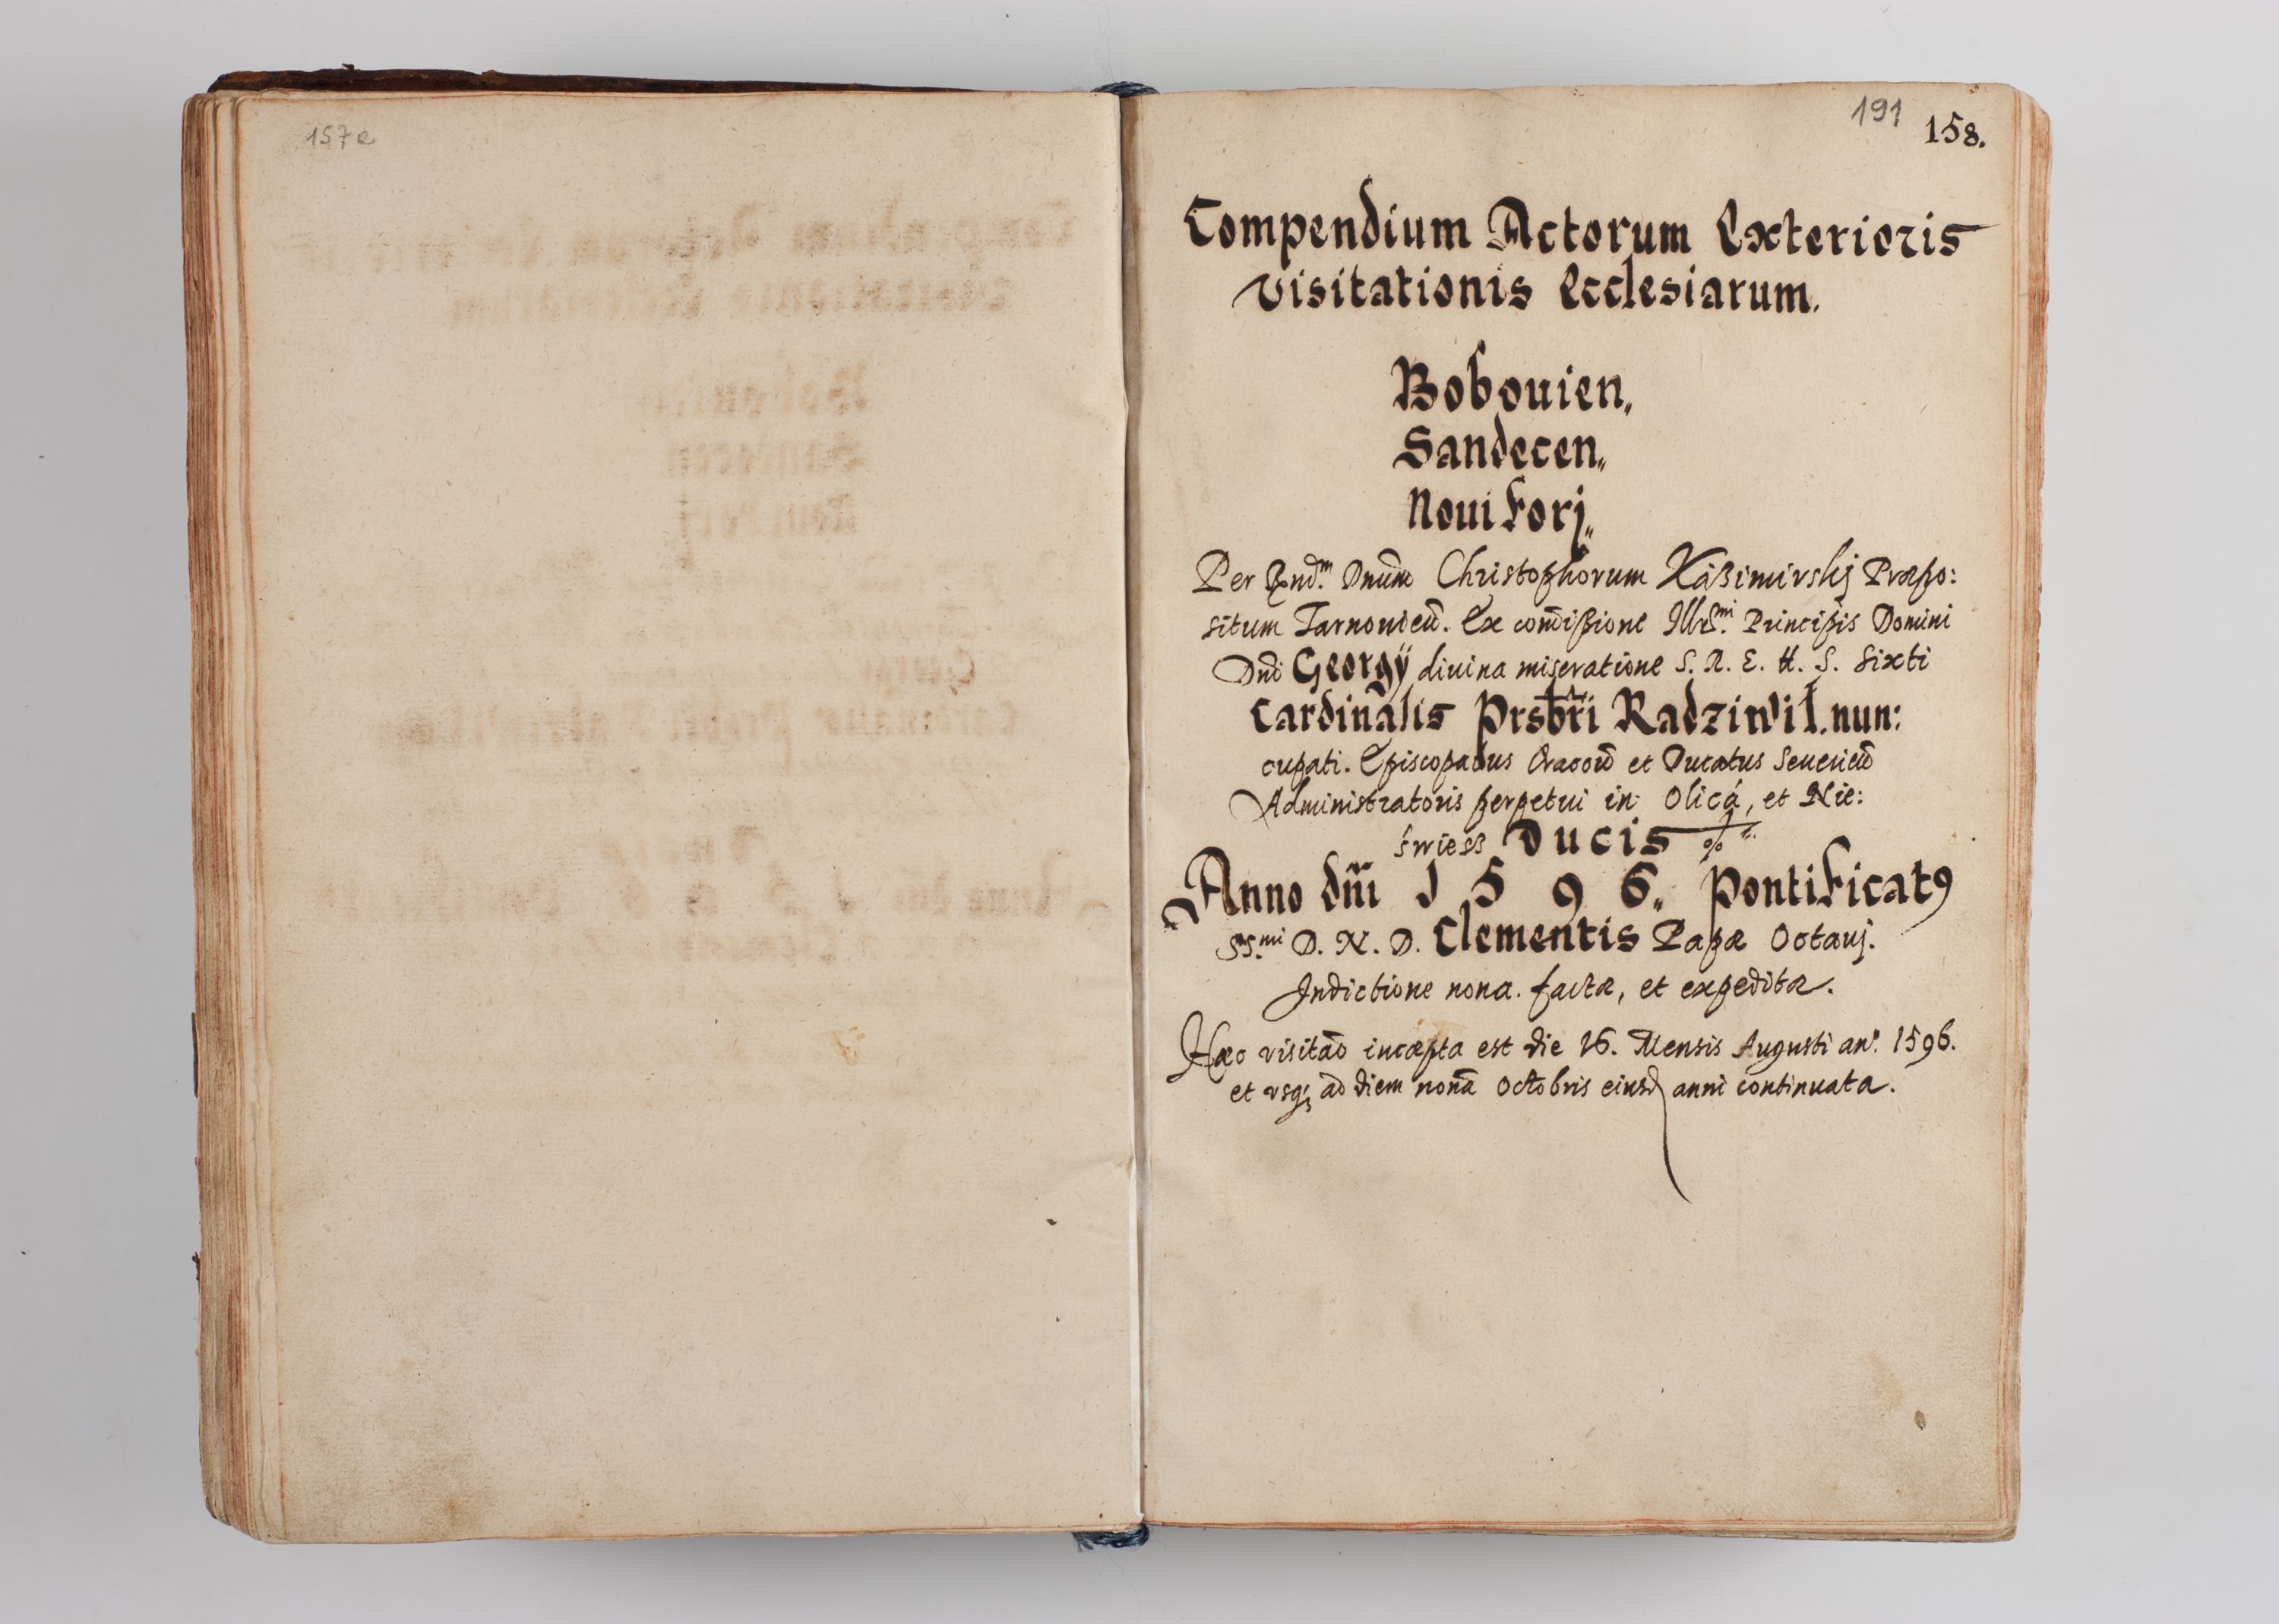 157e
191
158.
Compendium Actorum Exterioris
visitationis Ecclesiarum.
Bobouien„
Sandecen„
Noui Forj„
Per Rnd.m Dnum Christophorum Kaßimirskj Præpo:
situm Tarnouień. Ex com̄ißione Illrs.mi Principis Domini
Dnī Georgÿ diuina miseratione S. R. E. tt. S. Sixti
Cardinalis Prsbr̄i Radziwil. nun:
cupati. Episcopatus Cracoṽ et Ducatus Seuerień
Administratoris perpetui in Olica, et Nie:
świess Ducis
Anno dn̄i 1596„ Pontificatꝯ
SS.mi D. N. D. Clementis Papæ Octauj.
Indictione nona. factæ, et expeditæ.
Hæc visitāo incæpta est die 16. Mensis Augusti an°. 1596.
et vsqꝫ ad diem nonā Octobris eiusd anni continuata.